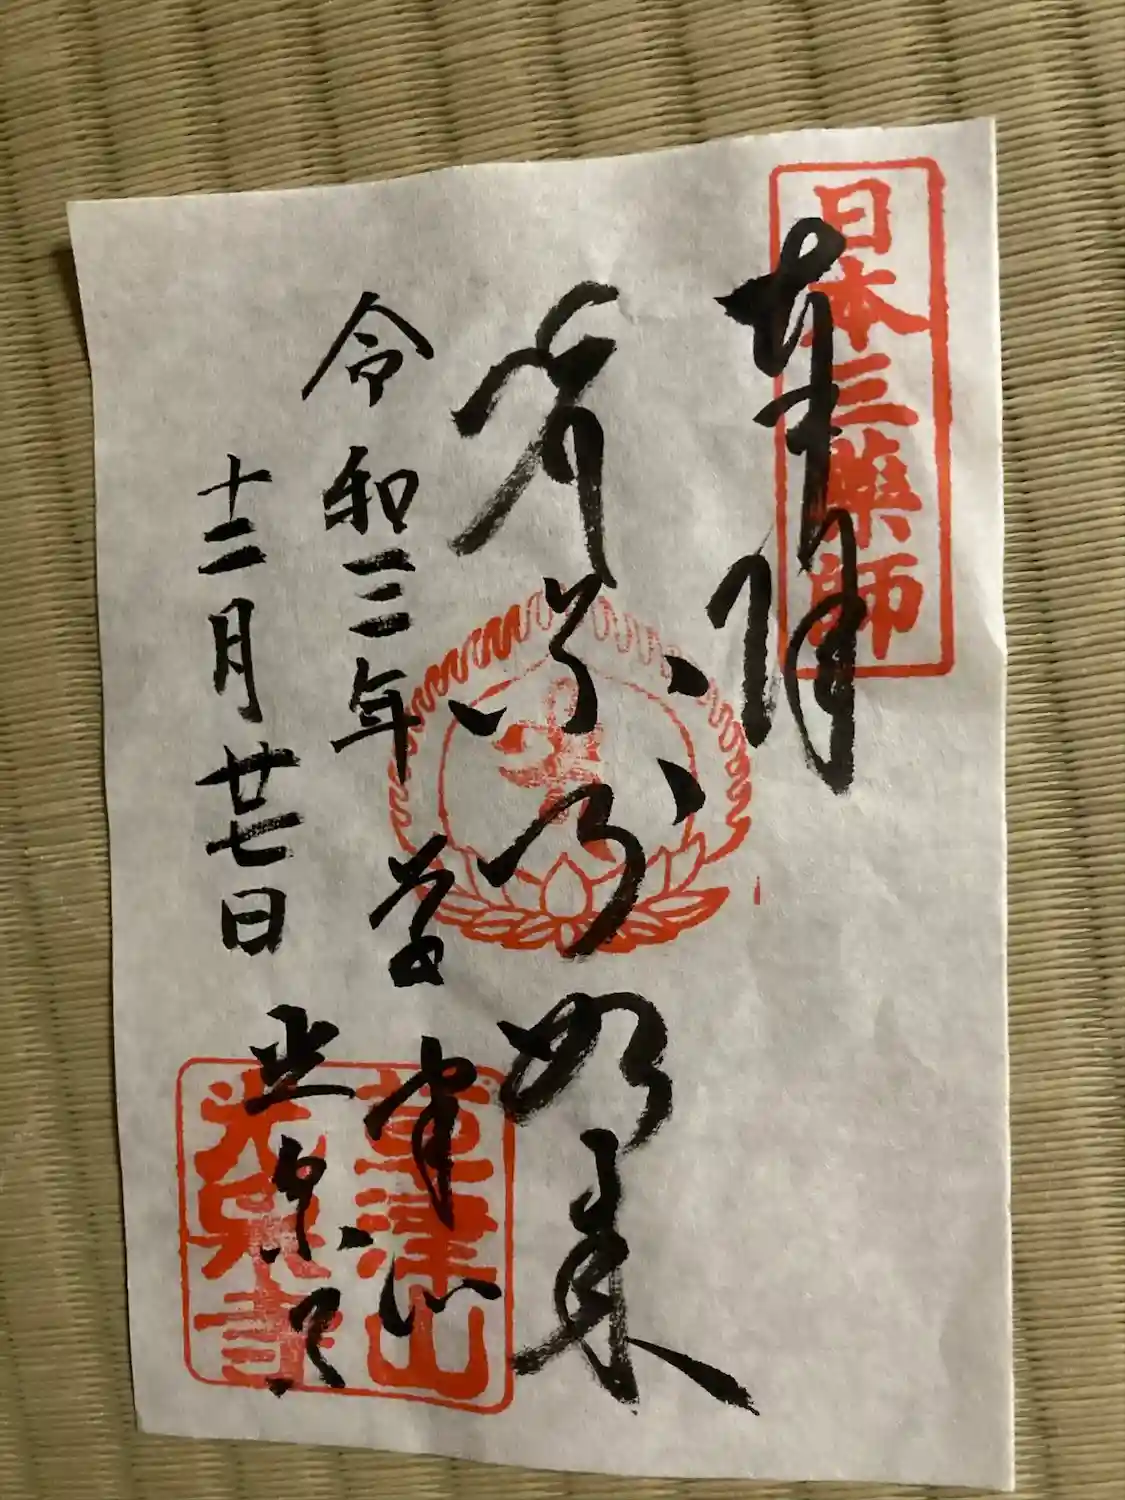 日本三薬師
奉拝
如来
令和三年 草津山
十二月廿七日 光泉寺
草津山
光泉寺